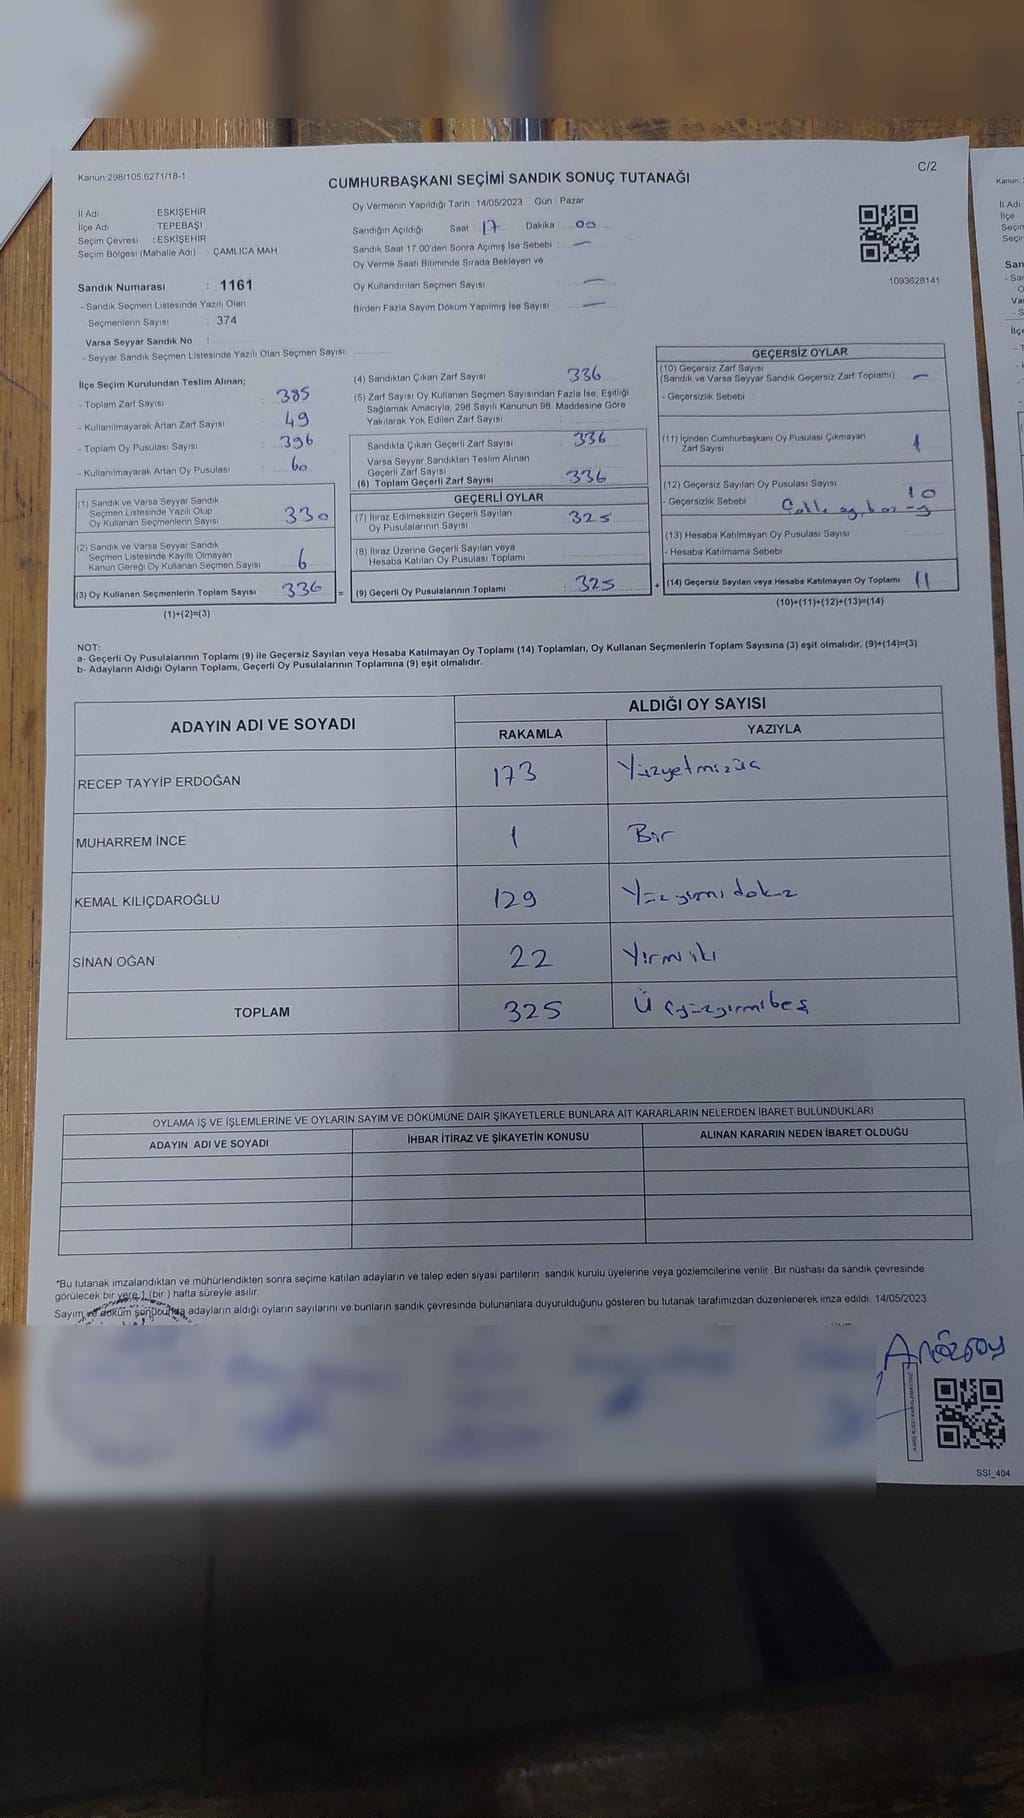 Kanun:298/105,6271/18-1
C/2
CUMHURBAŞKANI SEÇİMİ SANDIK SONUÇ TUTANAĞI
İl Adı : ESKİŞEHİR
İlçe Adı : TEPEBAŞI
Seçim Çevresi : ESKİŞEHİR
Seçim Bölgesi (Mahalle Adı) : ÇAMLICA MAH
Sandık Numarası : 1161
- Sandık Seçmen Listesinde Yazılı Olan
Seçmenlerin Sayısı : 374
Varsa Seyyar Sandık No :
- Seyyar Sandık Seçmen Listesinde Yazılı Olan Seçmen Sayısı:
Oy Vermenin Yapıldığı Tarih : 14/05/2023 Gün : Pazar
Sandığın Açıldığı Saat : 17 Dakika : 00
Sandık Saat 17:00'den Sonra Açımış İse Sebebi : —
Oy Verme Saati Bitiminde Sırada Bekleyen ve
Oy Kullandırılan Seçmen Sayısı : —
Birden Fazla Sayım Döküm Yapılmış İse Sayısı : —
1093628141
İlçe Seçim Kurulundan Teslim Alınan;
- Toplam Zarf Sayısı : 385
- Kullanılmayarak Artan Zarf Sayısı : 49
- Toplam Oy Pusulası Sayısı : 396
- Kullanılmayarak Artan Oy Pusulası : 60
(1) Sandık ve Varsa Seyyar Sandık
Seçmen Listesinde Yazılı Olup
Oy Kullanan Seçmenlerin Sayısı : 330
(2) Sandık ve Varsa Seyyar Sandık
Seçmen Listesinde Kayıtlı Olmayan
Kanun Gereği Oy Kullanan Seçmen Sayısı : 6
(3) Oy Kullanan Seçmenlerin Toplam Sayısı : 336
(1)+(2)=(3)
=
(4) Sandıktan Çıkan Zarf Sayısı : 336
(5) Zarf Sayısı Oy Kullanan Seçmen Sayısından Fazla İse, Eşitliği
Sağlamak Amacıyla, 298 Sayılı Kanunun 98. Maddesine Göre
Yakılarak Yok Edilen Zarf Sayısı :
Sandıkta Çıkan Geçerli Zarf Sayısı : 336
Varsa Seyyar Sandıktan Teslim Alınan
Geçerli Zarf Sayısı :
(6) Toplam Geçerli Zarf Sayısı : 336
GEÇERLİ OYLAR
(7) İtiraz Edilmeksizin Geçerli Sayılan
Oy Pusulalarının Sayısı : 325
(8) İtiraz Üzerine Geçerli Sayılan veya
Hesaba Katılan Oy Pusulası Toplamı :
(9) Geçerli Oy Pusulalarının Toplamı : 325
+
GEÇERSİZ OYLAR
(10) Geçersiz Zarf Sayısı
(Sandık ve Varsa Seyyar Sandık Geçersiz Zarf Toplamı) : —
- Geçersizlik Sebebi :
(11) İçinden Cumhurbaşkanı Oy Pusulası Çıkmayan
Zarf Sayısı : 1
(12) Geçersiz Sayılan Oy Pusulası Sayısı : 10
- Geçersizlik Sebebi :
(13) Hesaba Katılmayan Oy Pusulası Sayısı :
- Hesaba Katılmama Sebebi :
(14) Geçersiz Sayılan veya Hesaba Katılmayan Oy Toplamı : 11
(10)+(11)+(12)+(13)=(14)
NOT:
a- Geçerli Oy Pusulalarının Toplamı (9) ile Geçersiz Sayılan veya Hesaba Katılmayan Oy Toplamı (14) Toplamları, Oy Kullanan Seçmenlerin Toplam Sayısına (3) eşit olmalıdır. (9)+(14)=(3)
b- Adayların Aldığı Oyların Toplamı, Geçerli Oy Pusulalarının Toplamına (9) eşit olmalıdır.
ADAYIN ADI VE SOYADI ALDIĞI OY SAYISI
RAKAMLA YAZIYLA
RECEP TAYYİP ERDOĞAN 173 Yüzyetmişüç
MUHARREM İNCE 1 Bir
KEMAL KILIÇDAROĞLU 129 Yüzyirmidokuz
SİNAN OĞAN 22 Yirmiiki
TOPLAM 325 Üçyüzyirmibeş
OYLAMA İŞ VE İŞLEMLERİNE VE OYLARIN SAYIM VE DÖKÜMÜNE DAİR ŞİKAYETLERLE BUNLARA AİT KARARLARIN NELERDEN İBARET BULUNDUKLARI
ADAYIN ADI VE SOYADI İHBAR İTİRAZ VE ŞİKAYETİN KONUSU ALINAN KARARIN NEDEN İBARET OLDUĞU
*Bu tutanak imzalandıktan ve mühürlendikten sonra seçime katılan adayların ve talep eden siyasi partilerin sandık kurulu üyelerine veya gözlemcilerine verilir. Bir nüshası da sandık çevresinde
görülecek bir yere 1 (bir ) hafta süreyle asılır.
Sayım ve döküm sonucunda adayların aldığı oyların sayılarını ve bunların sandık çevresinde bulunanlara duyurulduğunu gösteren bu tutanak tarafımızdan düzenlenerek imza edildi. 14/05/2023
SSI_404